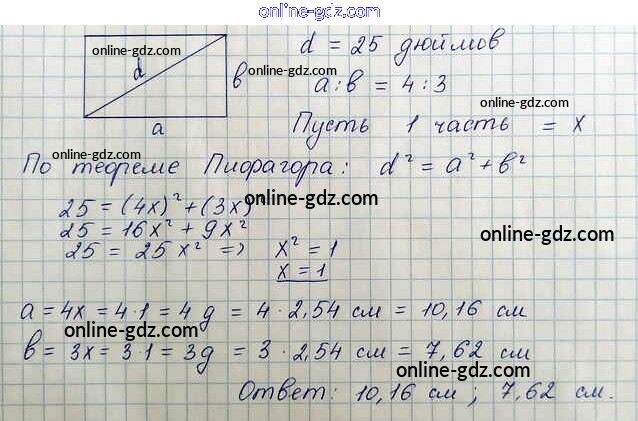 online-gdz.com
online-gdz.com
d = 25 дюймов
d
в
online-gdz.com
a : в = 4 : 3
online-gdz.com
a
Пусть 1 часть = x
online-gdz.com
По теореме Пифрагора: d² = a² + в²
25 = (4x)² + (3x)
online-gdz.com
25 = 16x² + 9x²
online-gdz.com
25 = 25x² => x² = 1
x = 1
online-gdz.com
a = 4x = 4·1 = 4 д = 4 · 2,54 см = 10,16 см
online-gdz.com
в = 3x = 3·1 = 3д = 3 · 2,54 см = 7,62 см
online-gdz.com
Ответ: 10,16 см ; 7,62 см.
online-gdz.com